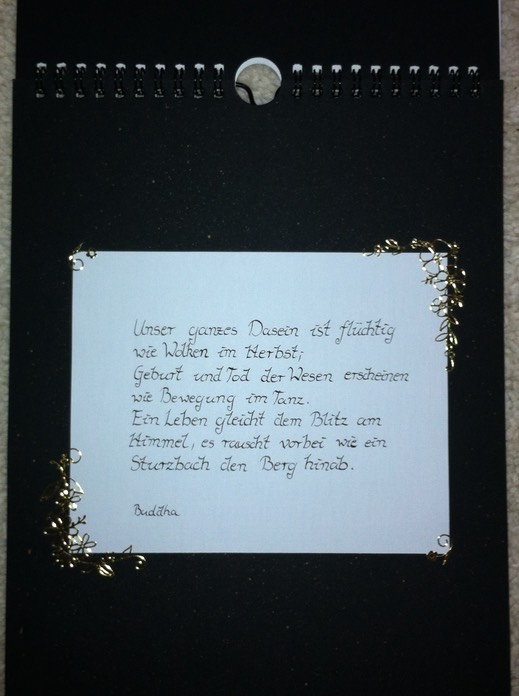 Unser ganzes Dasein ist flüchtig
wie Wolken im Herbst;
Geburt und Tod der Wesen erscheinen
wie Bewegung im Tanz.
Ein Leben gleicht dem Blitz am
Himmel, es rauscht vorbei wie ein
Sturzbach den Berg hinab.
Buddha